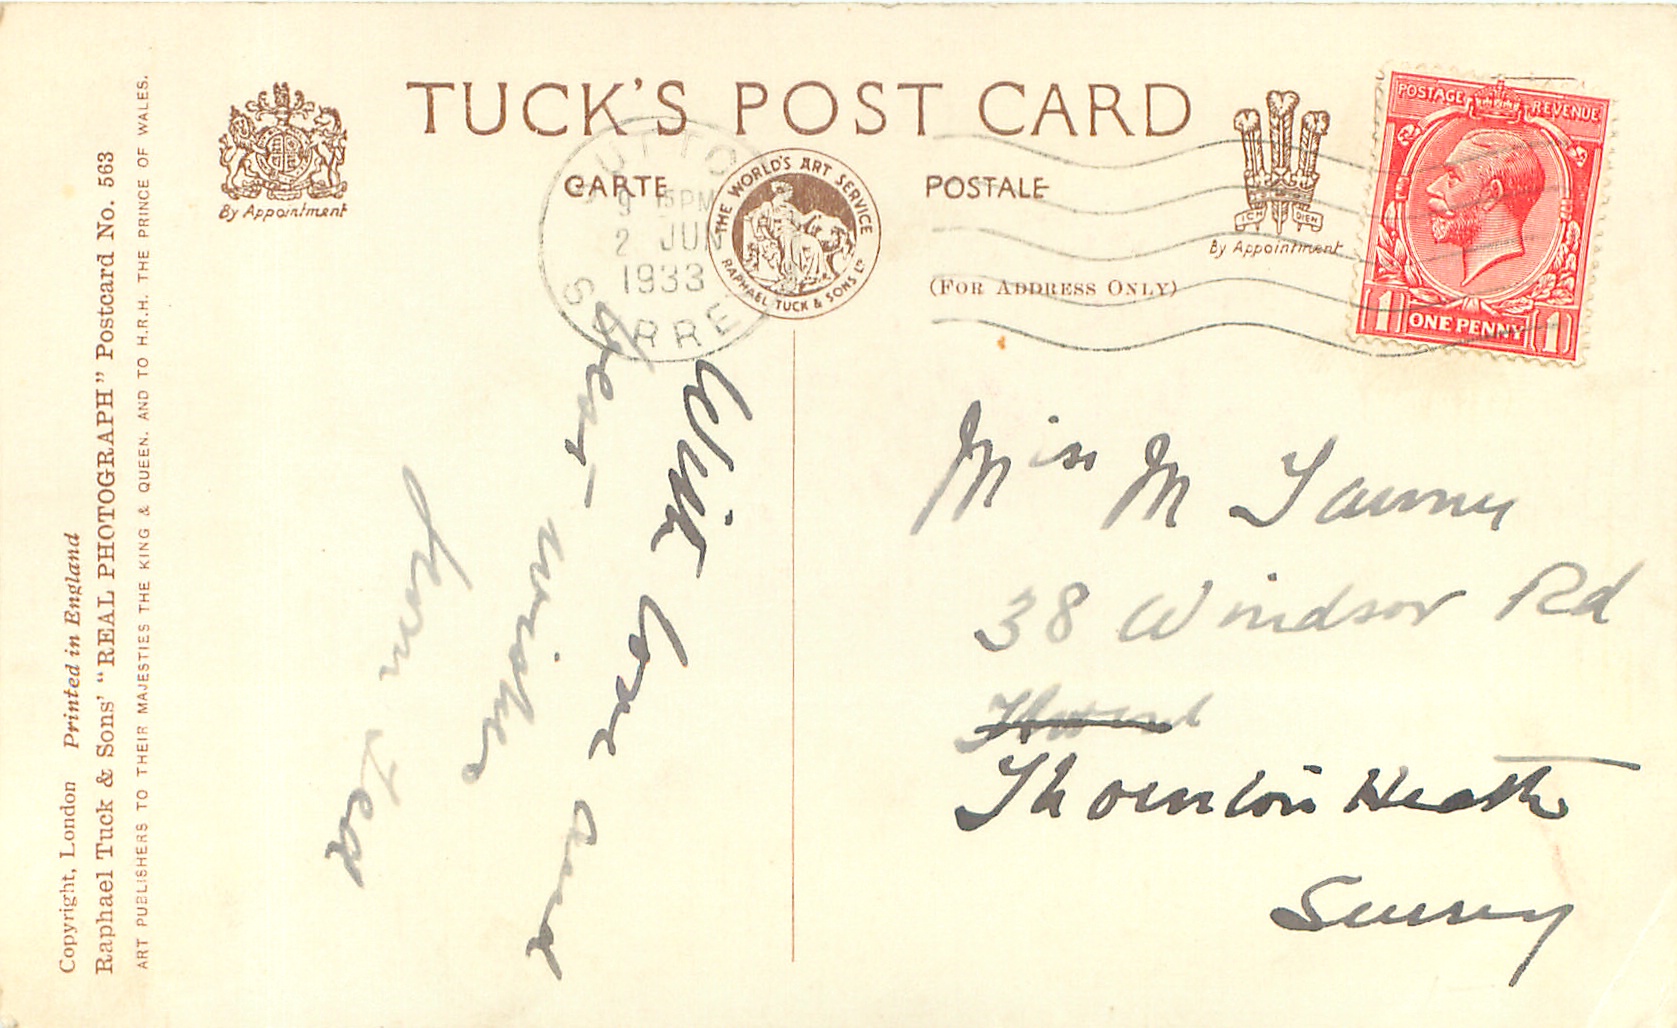 TUCK'S POST CARD
CARTE POSTALE
(FOR ADDRESS ONLY)
By Appointment
THE WORLD'S ART SERVICE
RAPHAEL TUCK & SONS LD
ICH DIEN
By Appointment
POSTAGE REVENUE
1 ONE PENNY 1
SUTTO
PM
2 JU
1933
SURRE
With love and
best wishes
from Ted
Miss M
38 Windsor Rd
Thornton Heath
Surrey
Copyright, London Printed in England
Raphael Tuck & Sons' "REAL PHOTOGRAPH" Postcard No. 563
ART PUBLISHERS TO THEIR MAJESTIES THE KING & QUEEN, AND TO H.R.H. THE PRINCE OF WALES.